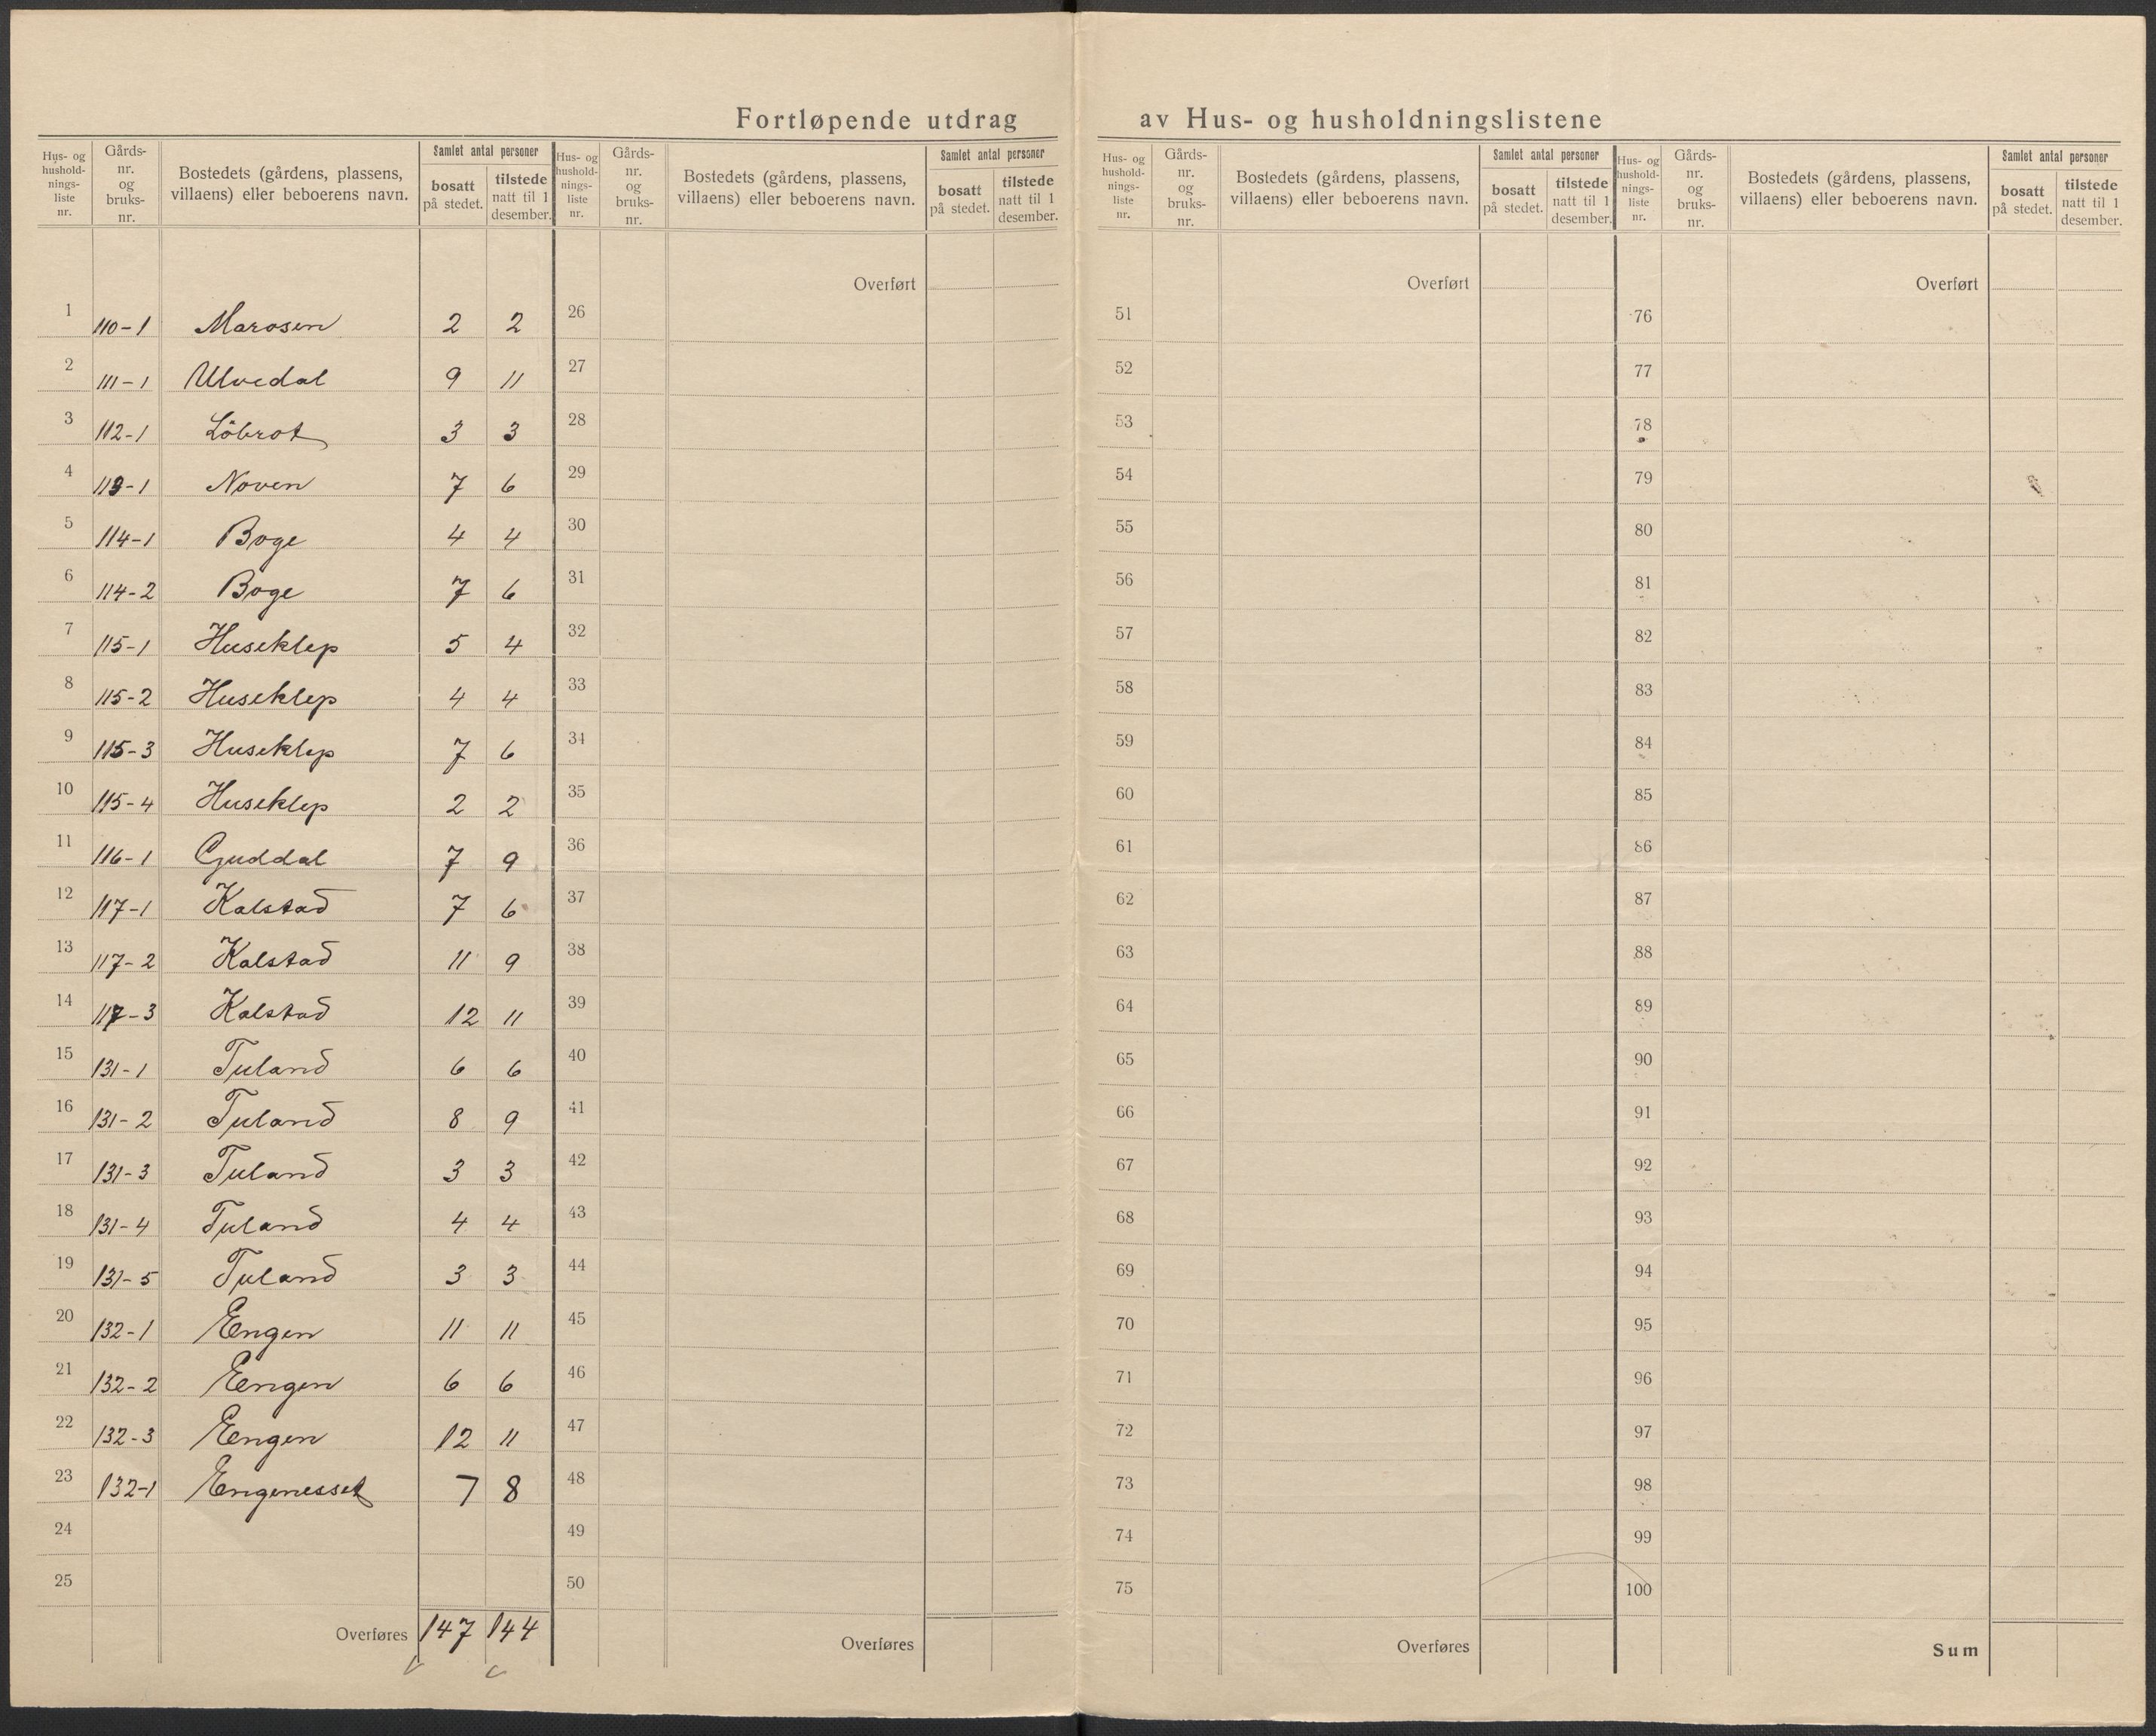 Fortløpende utdrag av Hus- og husholdningslistene
Hus- og hushold- nings- liste nr. Gårds- nr. og bruks- nr. Bostedets (gårdens, plassens, villaens) eller beboerens navn. Samlet antal personer bosatt på stedet. tilstede natt til 1 desember.
1 110-1 Marosen 2 2
2 111-1 Ulvedal 9 11
3 112-1 Löbrot 3 3
4 113-1 Noven 7 6
5 114-1 Boge 4 4
6 114-2 Boge 7 6
7 115-1 Huseklep 5 4
8 115-2 Huseklep 4 4
9 115-3 Huseklep 7 6
10 115-4 Huseklep 2 2
11 116-1 Guddal 7 9
12 117-1 Kalstad 7 6
13 117-2 Kalstad 11 9
14 117-3 Kalstad 12 11
15 131-1 Tuland 6 6
16 131-2 Tuland 8 9
17 131-3 Tuland 3 3
18 131-4 Tuland 4 4
19 131-5 Tuland 3 3
20 132-1 Engen 11 11
21 132-2 Engen 6 6
22 132-3 Engen 12 11
23 132-1 Engenesset 7 8
24
25
Overføres 147 144
Hus- og hushold- nings- liste nr. Gårds- nr. og bruks- nr. Bostedets (gårdens, plassens, villaens) eller beboerens navn. Samlet antal personer bosatt på stedet. tilstede natt til 1 desember.
Overført
26
27
28
29
30
31
32
33
34
35
36
37
38
39
40
41
42
43
44
45
46
47
48
49
50
Overføres
Hus- og hushold- nings- liste nr. Gårds- nr. og bruks- nr. Bostedets (gårdens, plassens, villaens) eller beboerens navn. Samlet antal personer bosatt på stedet. tilstede natt til 1 desember.
Overført
51
52
53
54
55
56
57
58
59
60
61
62
63
64
65
66
67
68
69
70
71
72
73
74
75
Overføres
Hus- og hushold- nings- liste nr. Gårds- nr. og bruks- nr. Bostedets (gårdens, plassens, villaens) eller beboerens navn. Samlet antal personer bosatt på stedet. tilstede natt til 1 desember.
Overført
76
77
78
79
80
81
82
83
84
85
86
87
88
89
90
91
92
93
94
95
96
97
98
99
100
Sum